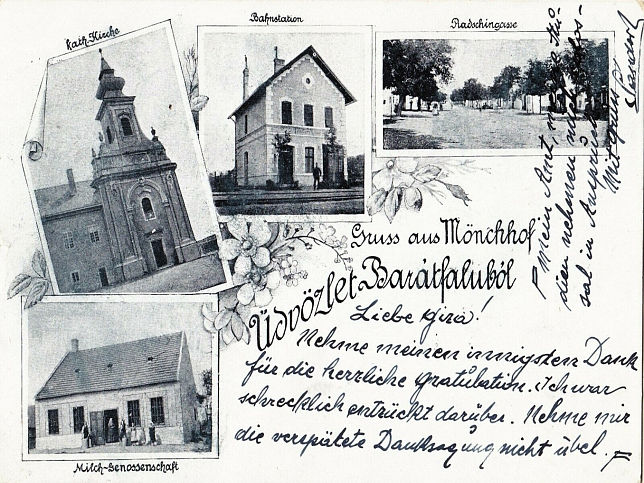 Kath. Kirche
Bahnstation
Radschingasse
Gruss aus Mönchhof
Üdvözlet Barátfaluból
Milch-Genossenschaft
Liebe Giza!
Nehme meinen innigsten Dank
für die herzliche Gratulation. Ich war
schrecklich entzückt darüber. Nehme mir
die verspätete Danksagung nicht übel.
mein Amt, meine Stu
dien nehmen mich
sal in Anspruch
Mit Gruss
Sandor